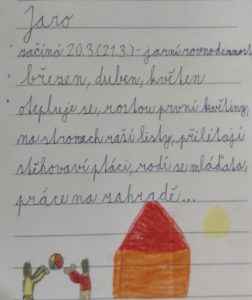 Jaro
začíná 20.3.(21.3.) - jarní rovnodennost
březen, duben, květen
otepluje se, rostou první květiny,
na stromech raší listy, přilétají
stěhovaví ptáci, rodí se mláďata,
práce na zahradě...